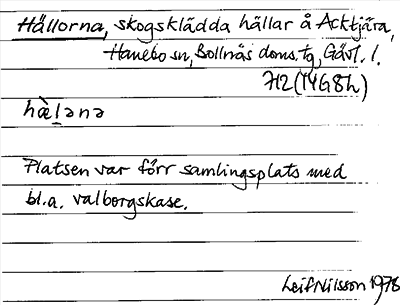 Hällorna, skogsklädda hällar å Acktjära,
Hanebo sn, Bollnäs doms. tg, Gävl. l.
H2 (14G8h)
hàḷənə
Platsen var förr samlingsplats med
bl.a. valborgskase.
Leif Nilsson 1978